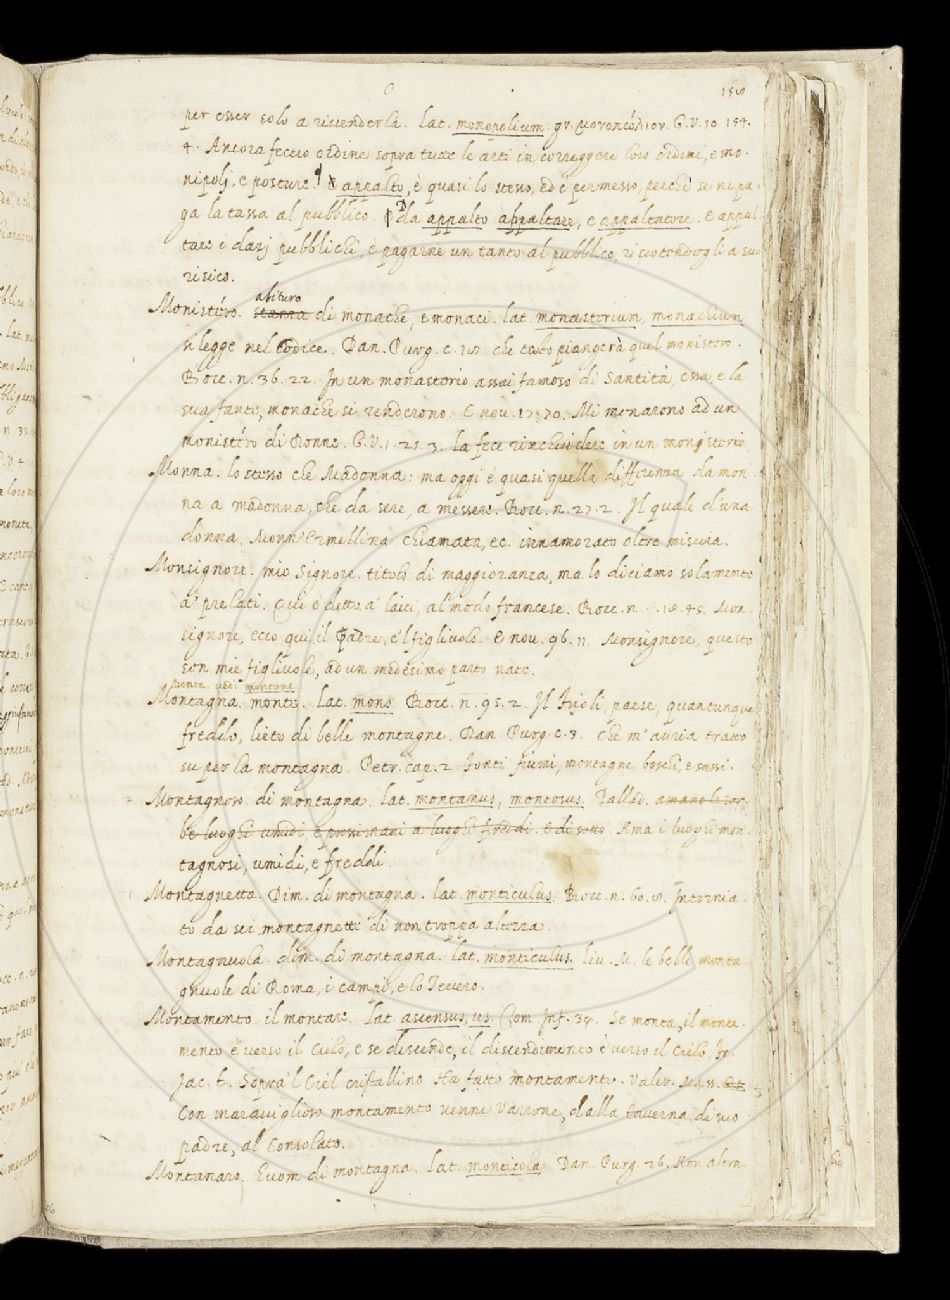 O
per esser solo a rivenderla. lat. monopolium. gr. μονοπώλιον. G.V. 10. 154.
4. Ancora feceio ordine sopra tutte le arti in correggere loro ordini, e mo-
nipolj, e posture. appalto, è quasi lo stesso, ed è permesso, perchè se ne pa-
ga la tassa al pubblico. Da appalto appaltare, e appaltatore. e appal-
tare i dazj pubblichi, è pagarne un tanto al pubblico, riscotendogli a suo
risico.
abituro
Monistéro. stanza di monache, e monaci. lat. monasterium, monachium
si legge nel Codice. Dan. Purg. c. 18. che tosto piangerà quel monistero.
Bocc. n. 36. 22. In un monastorio assai famoso di Santità, essa, e la
sua fante, monache si renderono. E nov. 17. 70. Mi menarono ad un
monistéro di Donne. G.V. 1. 25. 3. la fece rinchiudere in un monistorio
Monna. lo stesso che Madonna: ma oggi è quasi quella differenza da mon-
na a madonna, che da sere, a messere. Bocc. n. 27. 2. Il quale d'una
donna, Monn'Ermellina chiamata, ec. innamorato oltre misura.
Monsignore. mio Signore. titolo di maggioranza, ma lo diciamo solamente
a' prelati. Qui è detto a' laici, al modo francese. Bocc. n. 18. 45. Mon-
signore, ecco qui il Padre, e'l figlivolo. E nov. 96. 11. Monsignore, queste
son mie figlivole, ad un medesimo parto nate.
Monta. vedi montone
Montagna. monte. lat. mons. Bocc. n. 95. 2. Il Frioli, paese, quantunque
freddo, lieto di belle montagne. Dan. Purg. c. 3. che m'avria tratto
su per la montagna. Petr. cap. 2. Fonti fiumi, montagne boschi, e sassi.
Montagnoso. di montagna. lat. montanus, montosus. Pallad. amano le sor-
be luoghi umidi e prossimani a luoghi freddi. e di sotto. Ama i luoghi mon-
tagnosi, umidi, e freddi.
Montagnetta. Dim. di montagna. lat. monticulus. Bocc. n. 60. Intornia-
to da sei montagnette di non troppa altezza.
Montagnuola. dim. di montagna. lat. monticulus. liv. M. le belle monta-
gnuole di Roma, i campi, e lo Tevero.
Montamento. il montare. lat. ascensus, us. Com. Inf. 34. Se monta, il monta-
mento è verso il Cielo, e se discende, il discendimento è verso il Cielo. Fr.
Jac. t. Sopra'l Ciel cristallino Ha fatto montamento. Valer. Mass.
Con maraviglioso montamento venne Varrone, dalla taverna di suo
padre, al Consolato.
Montanaro. Huom di montagna. lat. monticola. Dan. Purg. 26. Non altri-